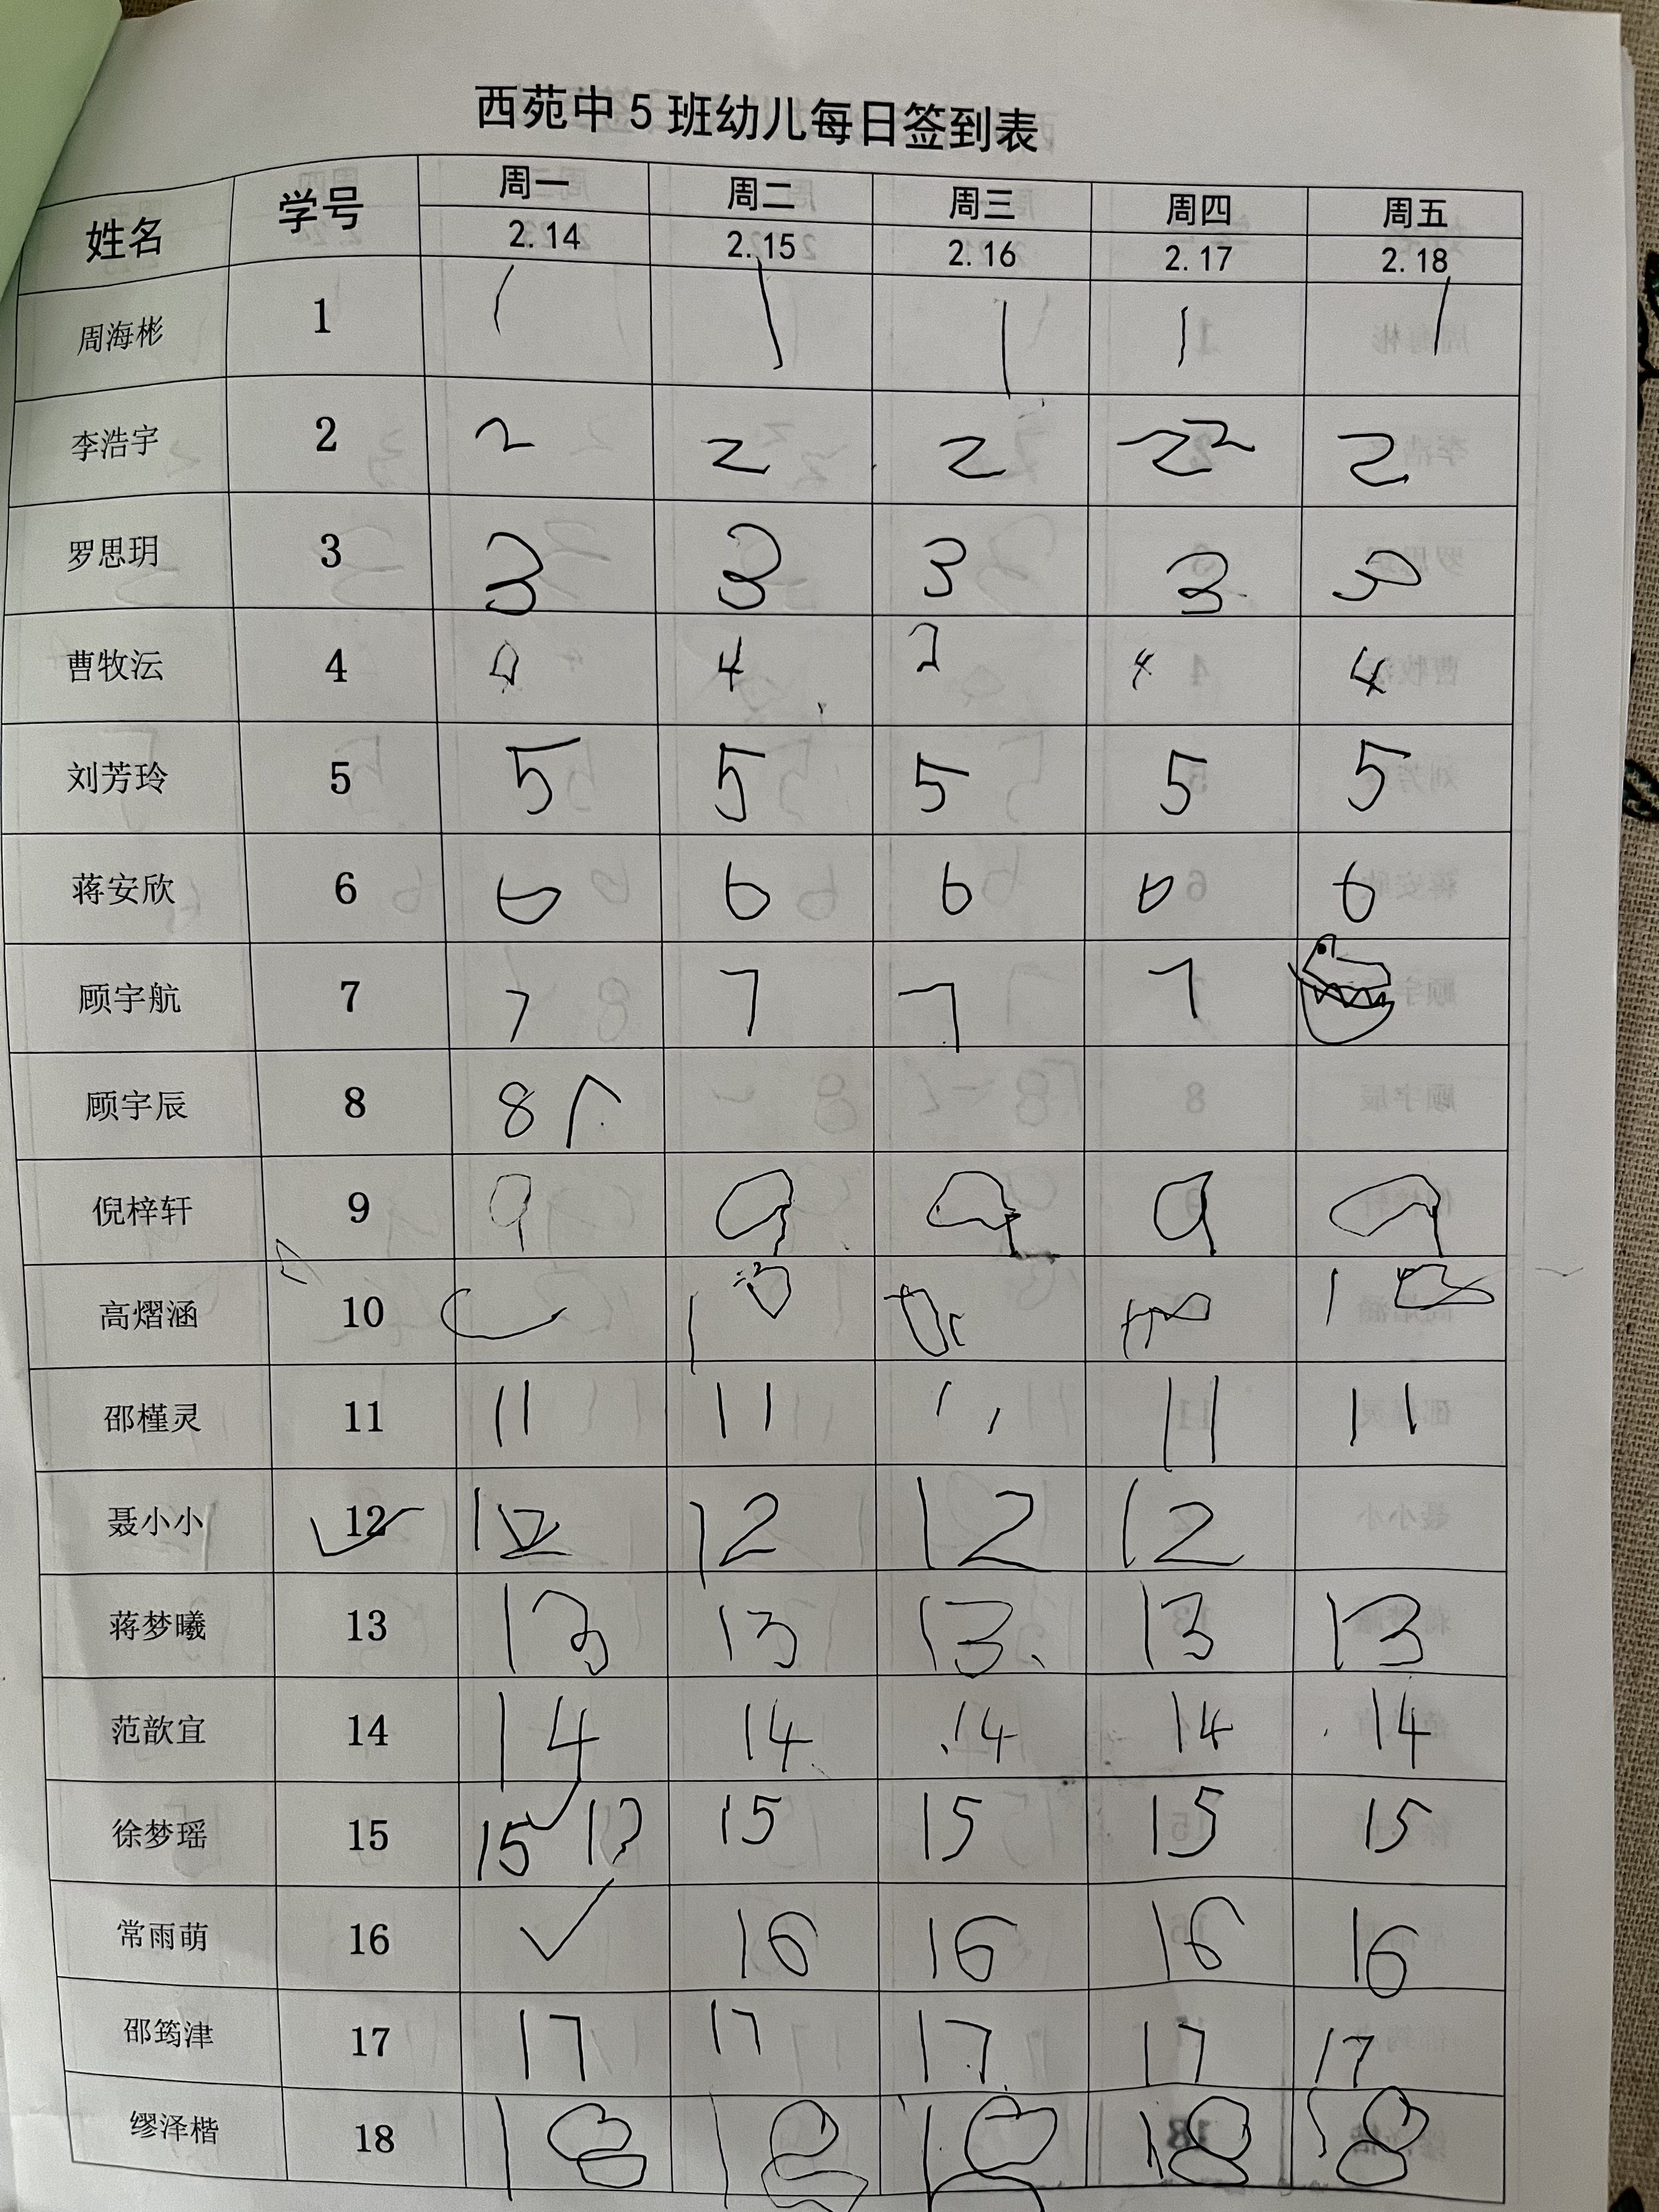 西苑中5班幼儿每日签到表
姓名 学号 周一 周二 周三 周四 周五
2.14 2.15 2.16 2.17 2.18
周海彬 1 1 1 1 1 1
李浩宇 2 2 2 2 22 2
罗思玥 3 3 3 3 3 3
曹牧沄 4 4 4 4 4
刘芳玲 5 5 5 5 5 5
蒋安欣 6 6 6 6 6 6
顾宇航 7 7 7 7 7
顾宇辰 8 8
倪梓轩 9 9 9 9 9 9
高熠涵 10 10 10
邵槿灵 11 11 11 11 11 11
聂小小 12 12 12 12 12
蒋梦曦 13 13 13 13 13 13
范歆宜 14 14 14 14 14 14
徐梦瑶 15 15 15 15 15 15
常雨萌 16 ✓ 16 16 16 16
邵筠津 17 17 17 17 17 17
缪泽楷 18 18 18 18 18 18